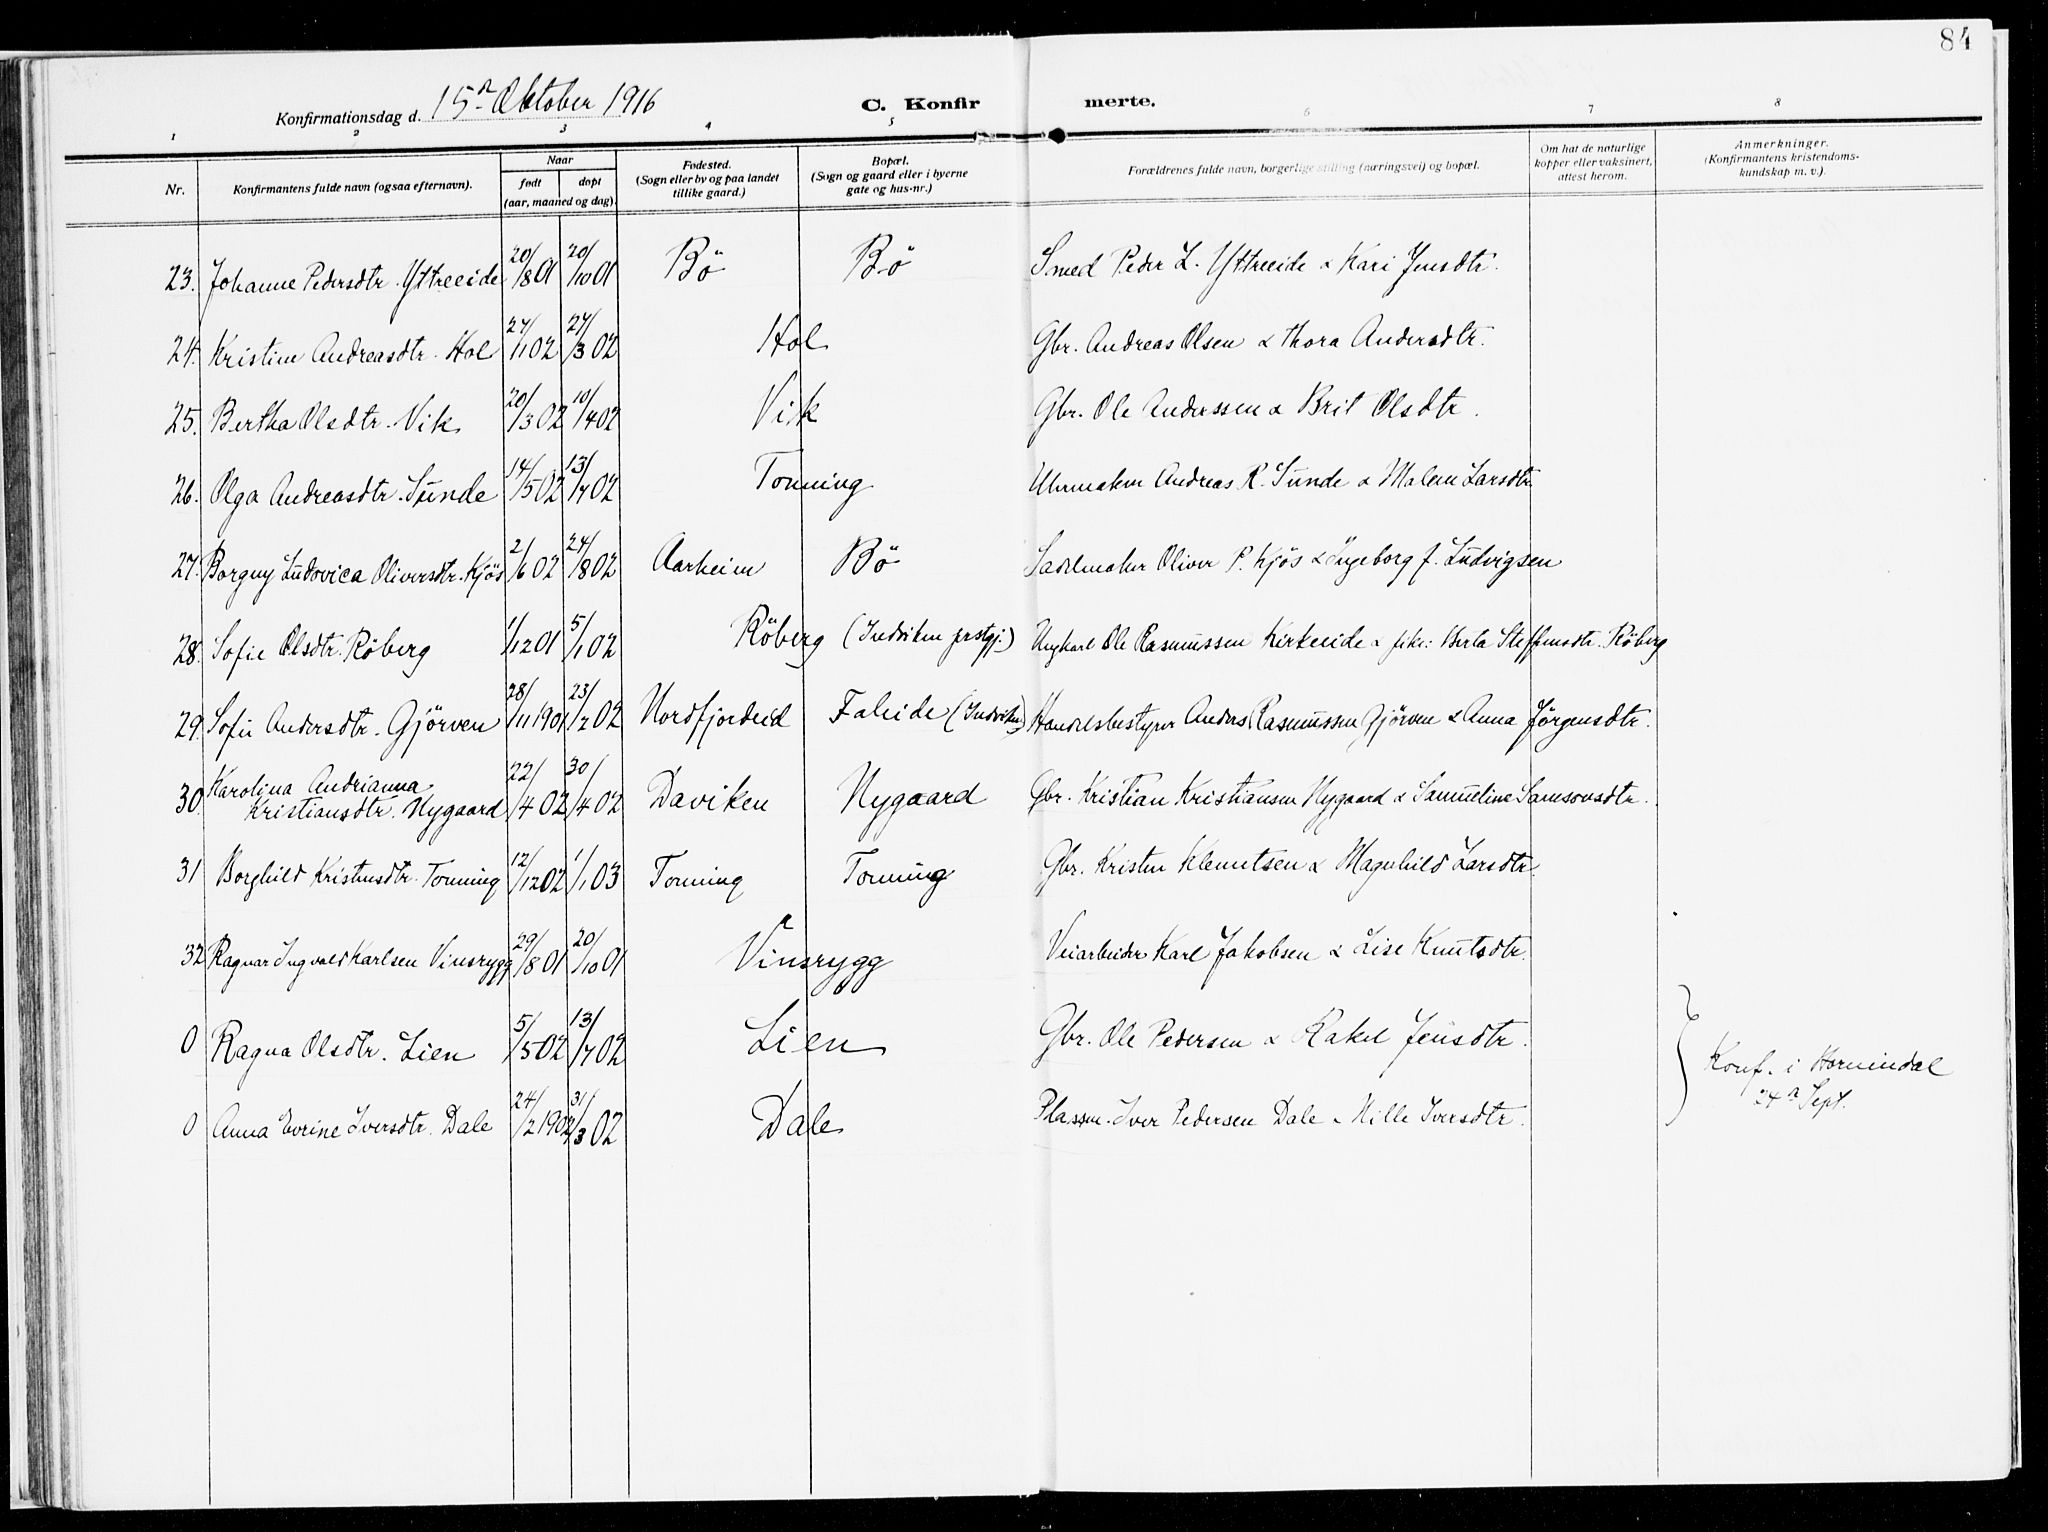 84
Konfirmationsdag d. 15de Oktober 1916
C. Konfirmerte.
1 2 3 4 5 6 7 8
Nr. Konfirmantens fulde navn (ogsaa efternavn). Naar født døpt (aar, maaned og dag). Fødested. (Sogn eller by og paa landet tillike gaard.) Bopæl. (Sogn og gaard eller i byerne gate og hus-nr.) Forældrenes fulde navn, borgerlige stilling (næringsvei) og bopæl. Om hat de naturlige kopper eller vaksinert, attest herom. Anmerkninger. (Konfirmantens kristendoms-kundskap m. v.).
23. Johanne Pedersdtr. Yttreeide 20/8 01 20/10 01 Bö Bö Smed Peder L. Yttreeide & Kari Jensdtr.
24. Kristine Andreasdtr. Hol 27/1 02 27/3 02 Hol Gbr. Andreas Olsen & Thora Andersdtr.
25. Bertha Olsdtr. Vik 20/3 02 10/4 02 Vik Gbr. Ole Anderssen & Brit Olsdtr.
26. Olga Andreasdtr. Sunde 14/5 02 13/7 02 Tonning Uhrmaker Andreas R. Sunde & Malene Larsdtr.
27. Borgny Ludovica Oliversdtr. Kjös 2/6 02 24/8 02 Aarheim Bö Sadelmaker Oliver P. Kjös & Ingeborg f. Ludvigsen
28. Sofie Olsdtr. Röberg 1/12 01 5/1 02 Röberg (Indviken prstgj.) Ungkarl Ole Rasmussen Kirkeeide & pike: Berta Steffensdtr. Röberg
29. Sofie Andersdtr. Gjörven 28/11 1901 23/2 02 Nordfjordeid Faleide (Indviken) Handelsbestyrer Anders Rasmussen Gjörven & Anna Jörgensdtr.
30. Karolina Andrianna Kristiansdtr. Nygaard 22/4 02 30/4 02 Daviken Nygaard Gbr. Kristian Kristiansen Nygaard & Samueline Samsonsdtr.
31 Borghild Kristensdtr. Tonning 12/12 02 1/1 03 Tonning Tonning Gbr. Kristen Klemetsen & Magnhild Larsdtr.
32 Ragnar Ingvald Karlsen Vinsrygg 29/8 01 20/10 01 Vinsrygg Veiarbeider Karl Jakobsen & Lise Knutsdtr.
0 Ragna Olsdtr. Lien 5/5 02 13/7 02 Lien Gbr. Ole Pedersen & Rakel Jensdtr.
0 Anna Evrine Iversdtr. Dale 24/2 1902 31/3 02 Dale Plassm. Iver Pedersen Dale & Nille Iversdtr.
Konf. i Hornindal
24de Sept.